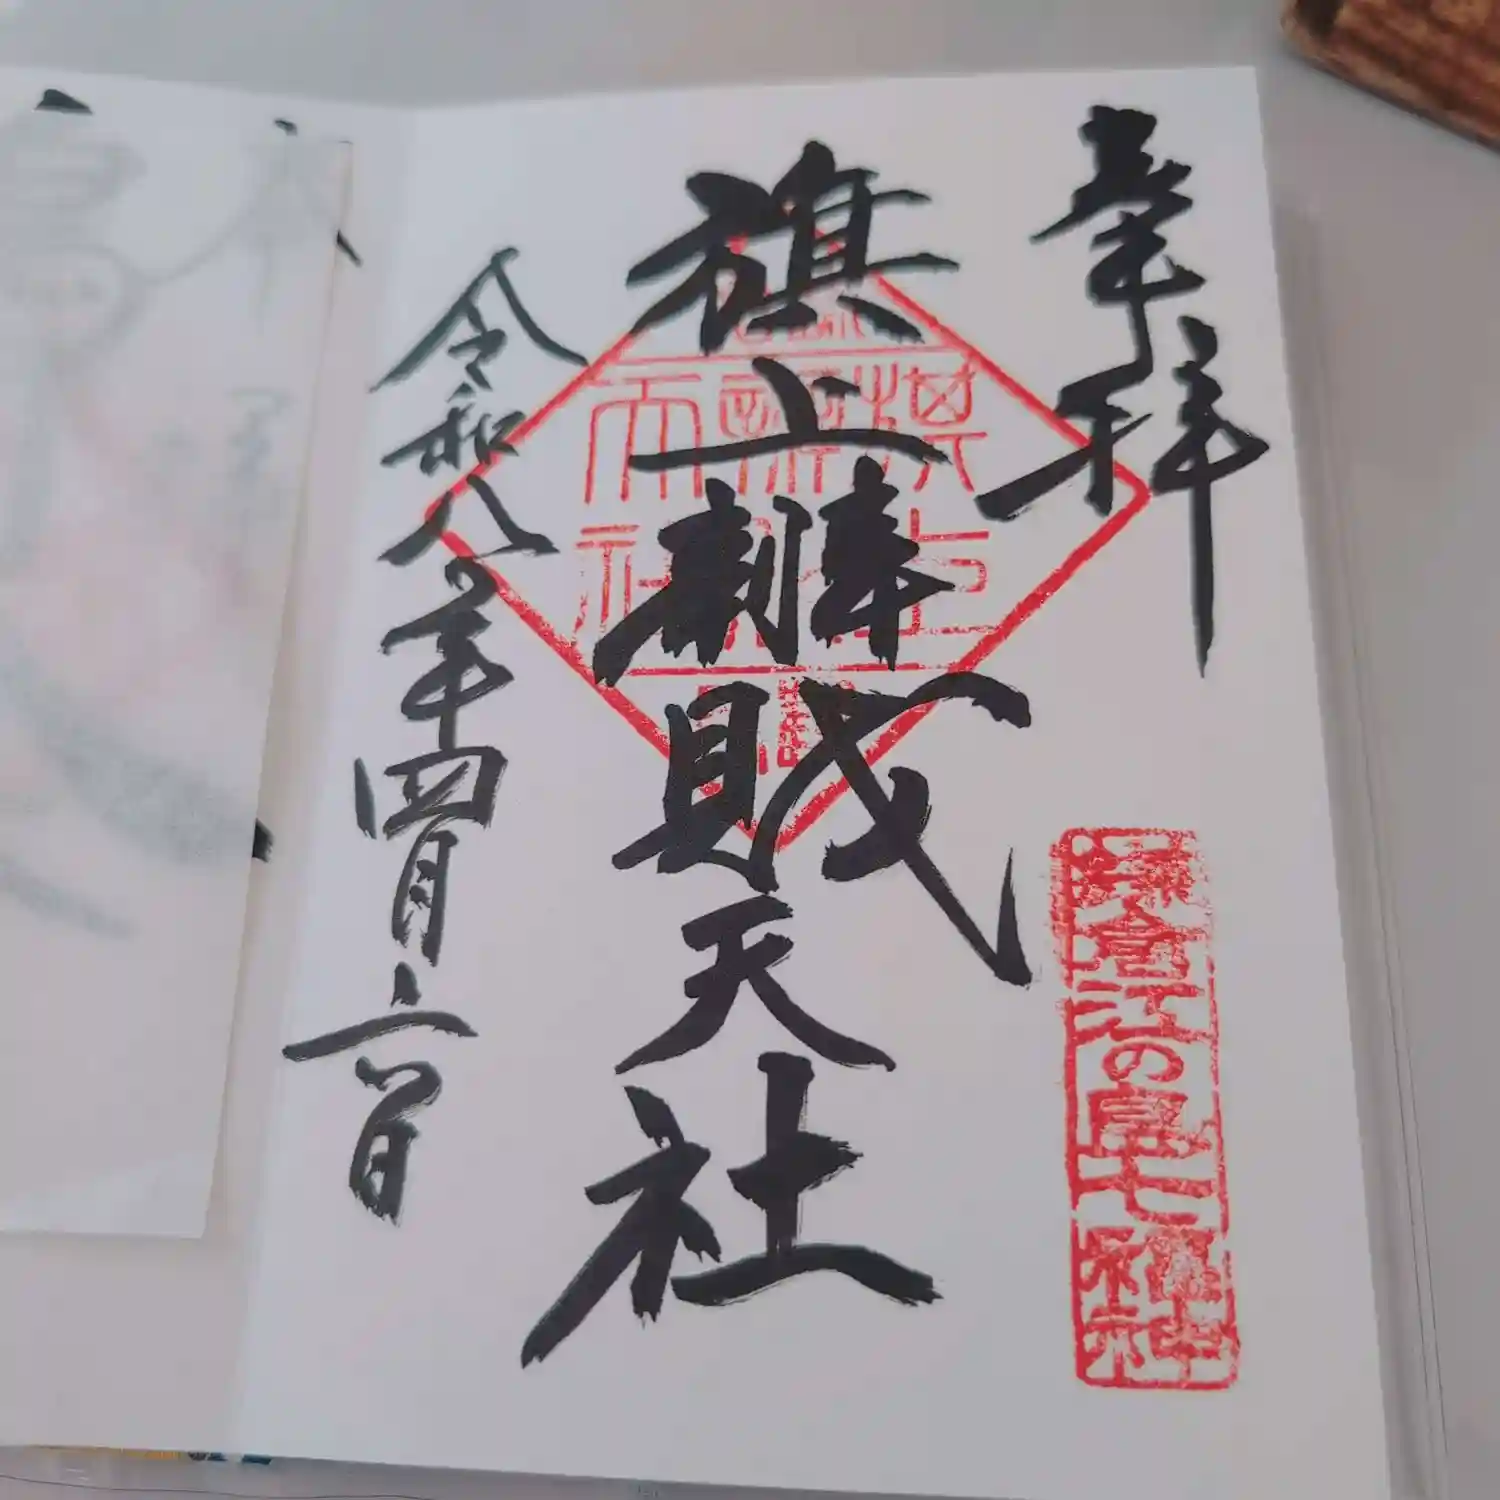 奉拝
鎌倉江の島七福神
旗上辨財天社
令和八年四月六日